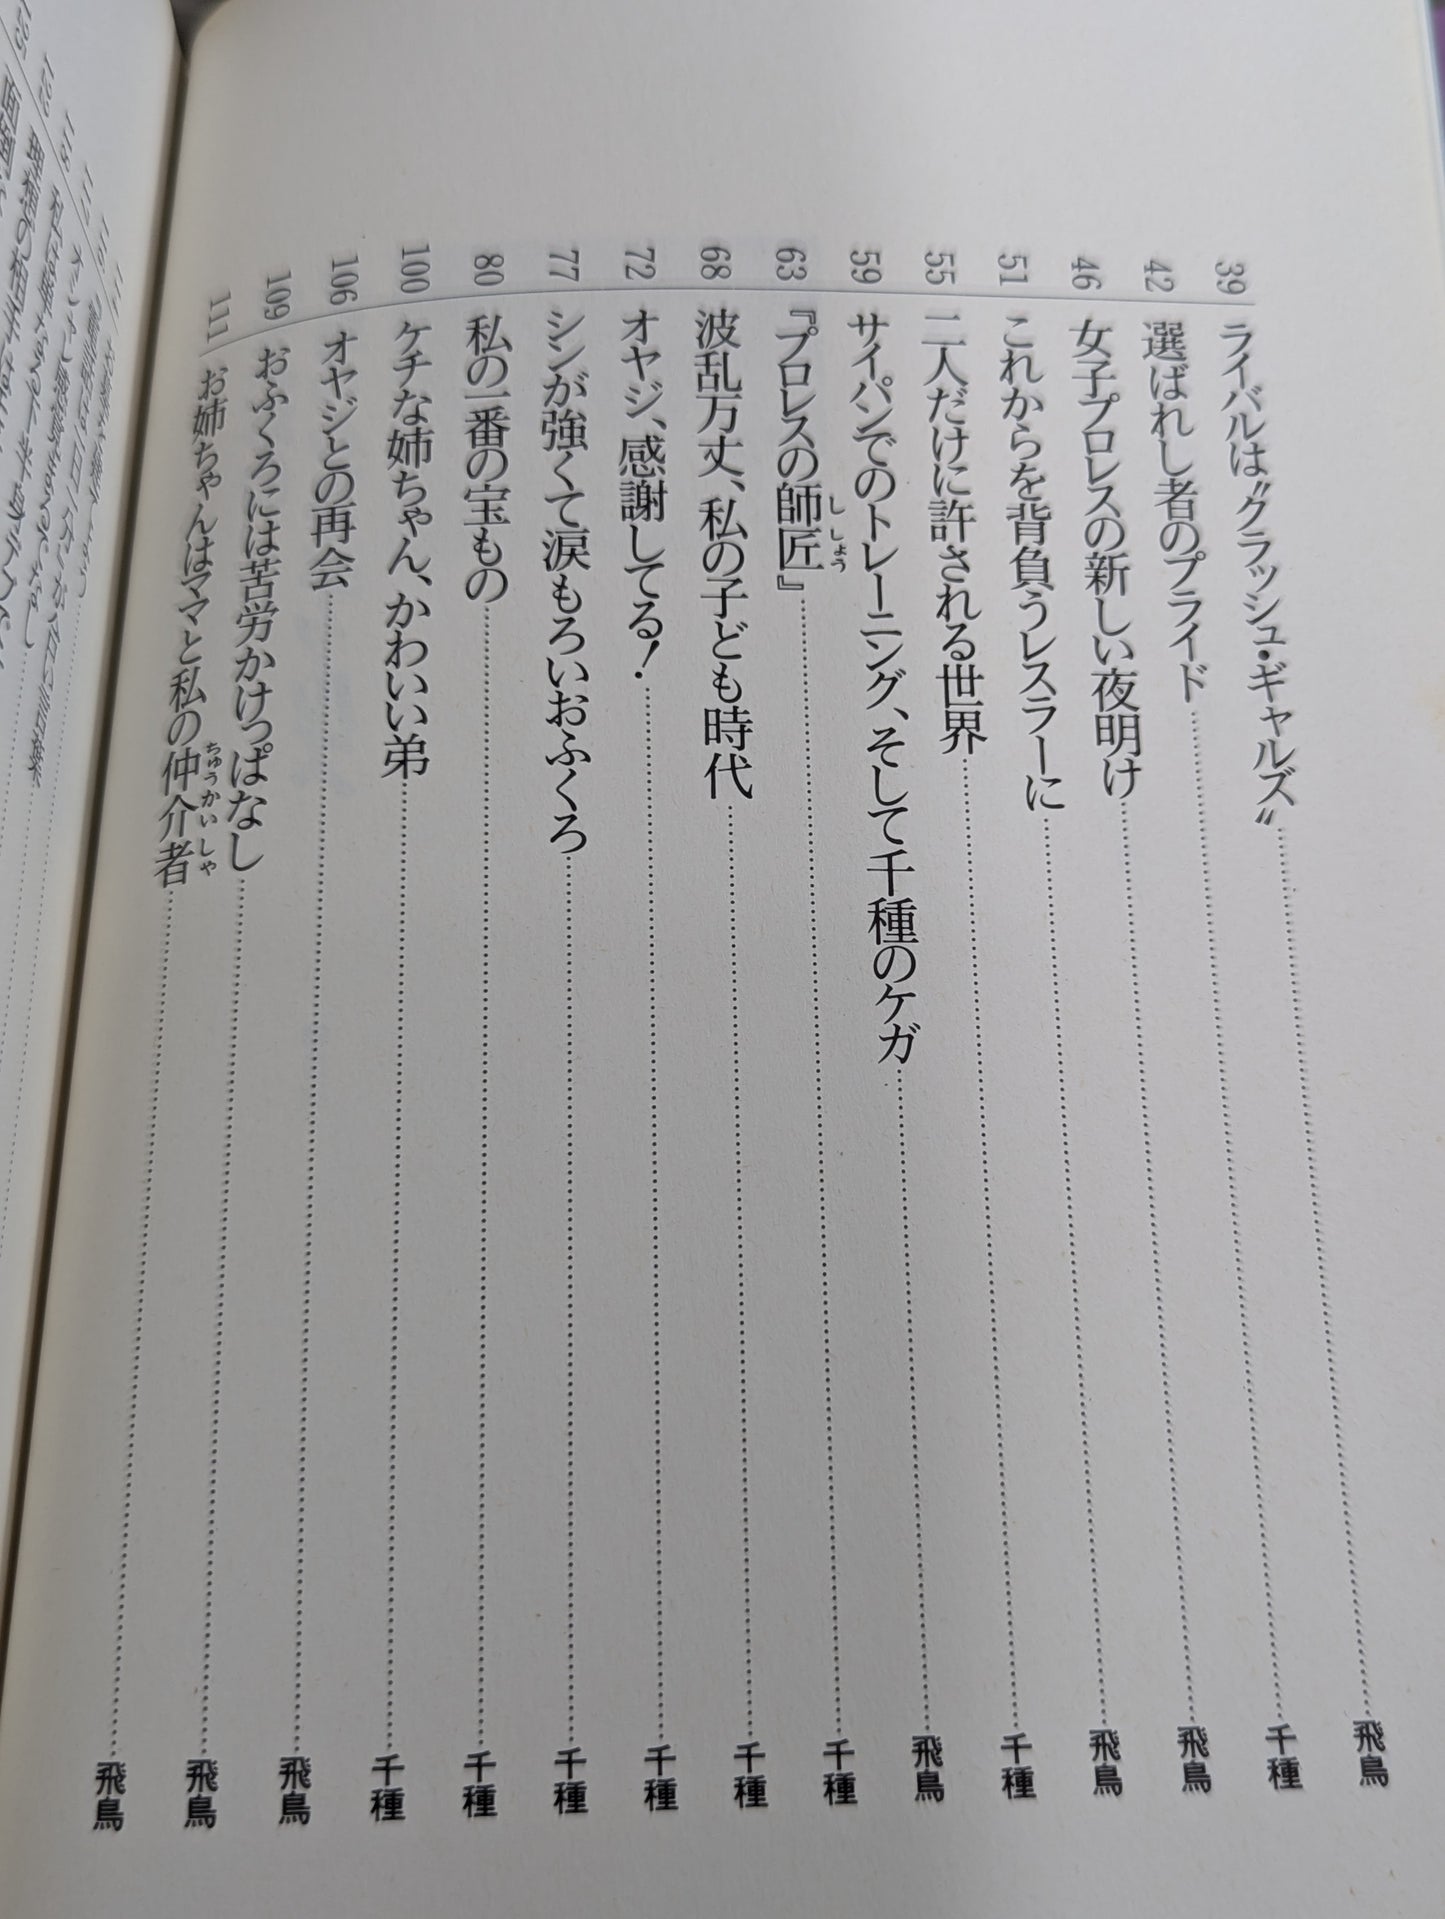 39 ライバルは〝クラッシュ・ギャルズ〟 飛鳥
42 選ばれし者のプライド 千種
46 女子プロレスの新しい夜明け 飛鳥
51 これからを背負うレスラーに 飛鳥
55 二人だけに許される世界 千種
59 サイパンでのトレーニング、そして千種のケガ 飛鳥
63 『プロレスの師匠』 千種
ししょう
68 波乱万丈、私の子ども時代 千種
72 オヤジ、感謝してる! 千種
77 シンが強くて涙もろいおふくろ 千種
80 私の一番の宝もの 千種
100 ケチな姉ちゃん、かわいい弟 千種
106 オヤジとの再会 飛鳥
109 おふくろには苦労かけっぱなし 飛鳥
111 お姉ちゃんはママと私の仲介者 飛鳥
ちゅうかいしゃ